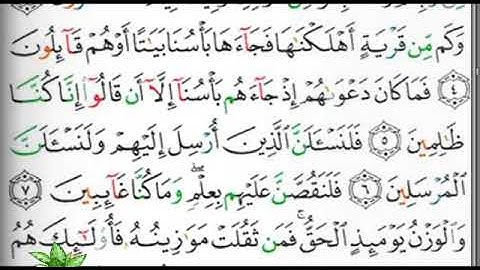 وَكَم مِّن قَرْيَةٍ أَهْلَكْنَٰهَا فَجَآءَهَا بَأْسُنَا بَيَٰتًا أَوْ هُمْ قَآئِلُونَ
﴿٤﴾ فَمَا كَانَ دَعْوَىٰهُمْ إِذْ جَآءَهُم بَأْسُنَآ إِلَّآ أَن قَالُوٓا۟ إِنَّا كُنَّا
ظَٰلِمِينَ ﴿٥﴾ فَلَنَسْـَٔلَنَّ ٱلَّذِينَ أُرْسِلَ إِلَيْهِمْ وَلَنَسْـَٔلَنَّ
ٱلْمُرْسَلِينَ ﴿٦﴾ فَلَنَقُصَّنَّ عَلَيْهِم بِعِلْمٍ ۖ وَمَا كُنَّا غَآئِبِينَ ﴿٧﴾
وَٱلْوَزْنُ يَوْمَئِذٍ ٱلْحَقُّ ۚ فَمَن ثَقُلَتْ مَوَٰزِينُهُۥ فَأُو۟لَٰٓئِكَ هُمُ